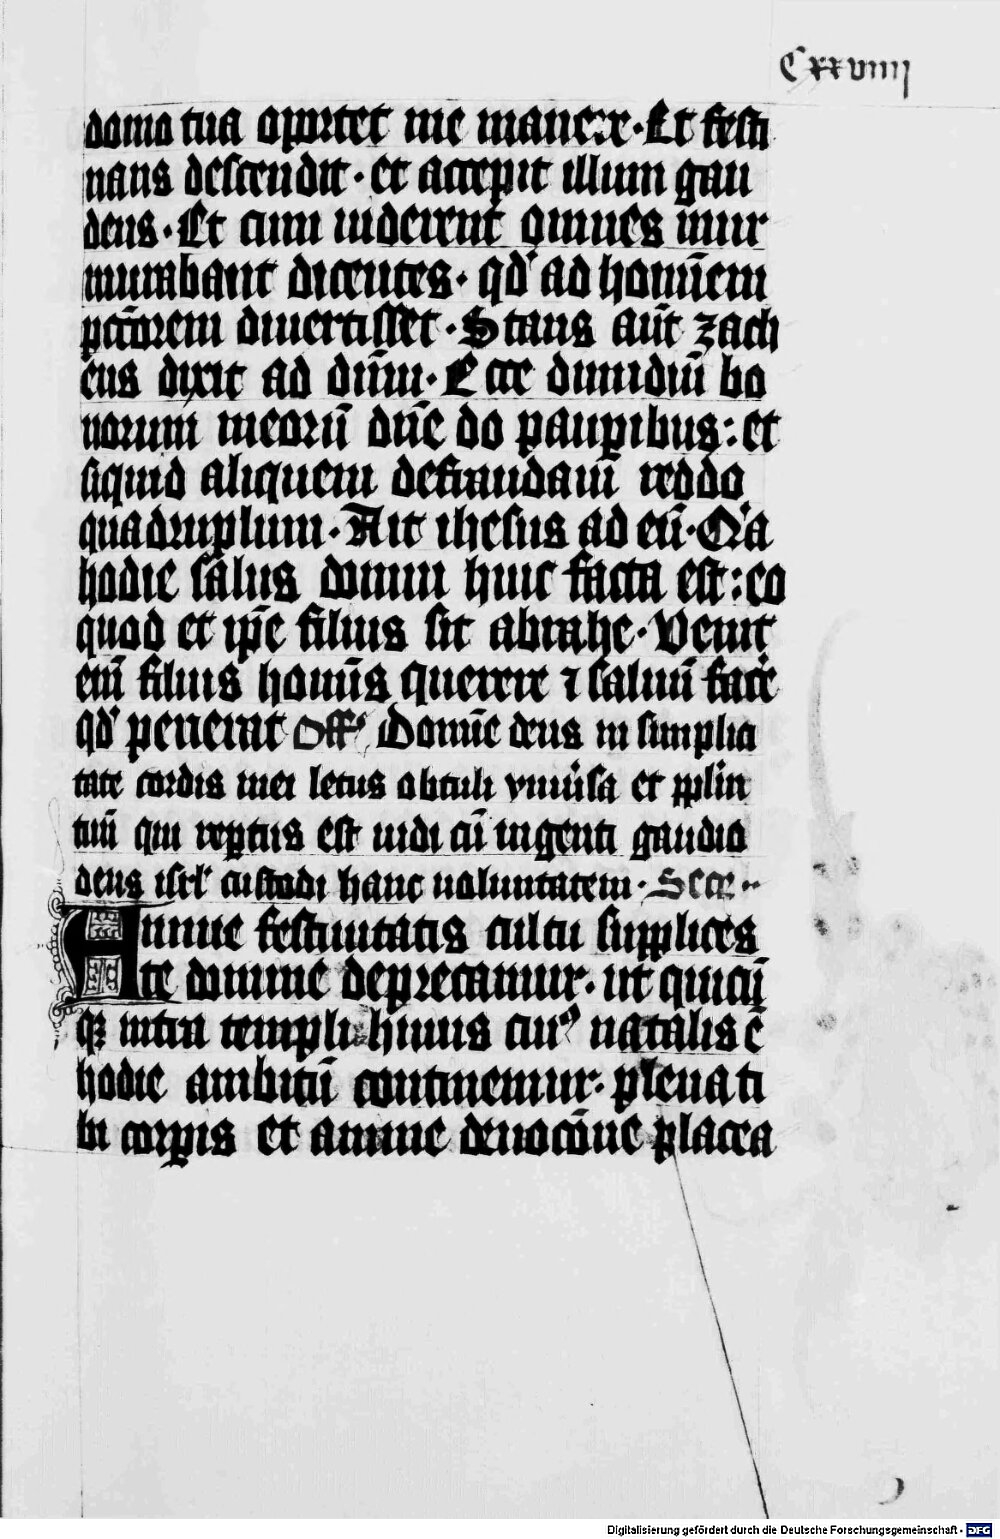 Cxxviiij
domo tua oportet me manere · Et festi
nans descendit · et accepit illum gau
dens · Et cum uiderent omnes mur
murabant dicentes · qd' ad homīem
pctōrem diuertisset · Stans aūt zach
eus dixit ad dūm · Ecce dimidiū bo
norum meorū dūe do paupibus : et
siquid aliquem defraudaui reddo
quadruplum · Ait ihesus ad eū · Q'a
hodie salus domui huic facta est : eo
quod et ip̄e filius sit abrahe · Venit
eūi filius homīs querere ⁊ saluū facē
qd' perierat Off' Domīe deus in simplici
tate cordis mei letus obtuli vniūsa et ppl̄m
tuū qui reptus est uidi cū ingenti gaudio
deus isrl' custodi hanc uoluntatem · Secr̄ ··
Annue festiuitatis cultu supplices
te domine deprecamur · ut quicū
qȝ intra templi huius cui' natalis ē
hodie ambitū continemur · plena ti
bi corpis et anime deuocōne placea
Digitalisierung gefördert durch die Deutsche Forschungsgemeinschaft - DFG